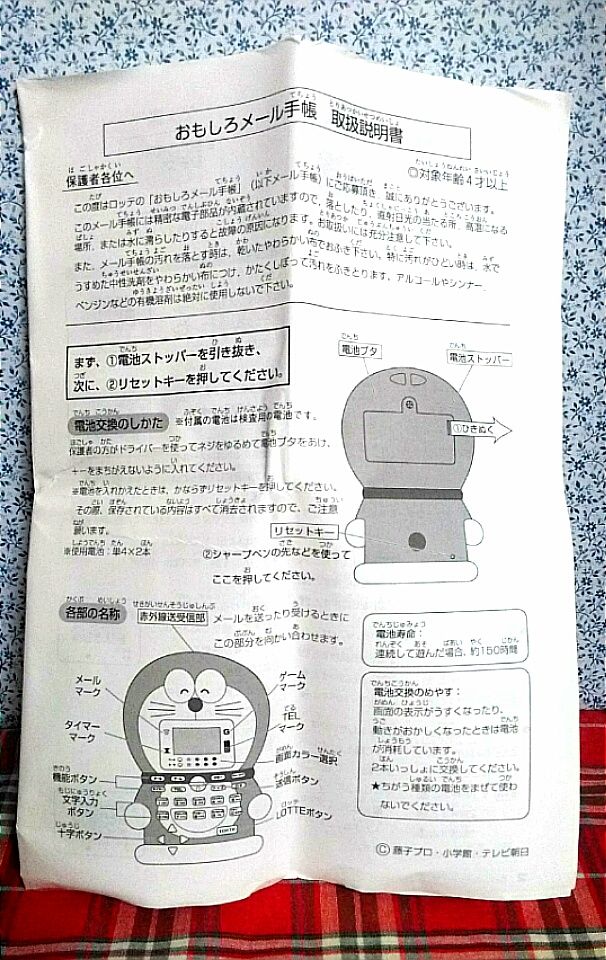 おもしろメール手帳 取扱説明書
保護者各位へ
◎対象年齢4才以上
この度はロッテの「おもしろメール手帳」(以下メール手帳)にご応募頂き、誠にありがとうございます。
このメール手帳には精密な電子部品が内蔵されていますので、落としたり、直射日光の当たる所、高温になる
場所、または水に濡らしたりすると故障の原因になります。お取扱いには充分注意して下さい。
また、メール手帳の汚れを落とす時は、乾いたやわらかい布でおふき下さい。特に汚れがひどい時は、水で
うすめた中性洗剤をやわらかい布につけ、かたくしぼって汚れをふきとります。アルコールやシンナー、
ベンジンなどの有機溶剤は絶対に使用しないで下さい。
まず、①電池ストッパーを引き抜き、
次に、②リセットキーを押してください。
電池ブタ
電池ストッパー
①ひきぬく
電池交換のしかた ※付属の電池は検査用の電池です。
保護者の方がドライバーを使ってネジをゆるめて電池ブタをあけ、
+-をまちがえないように入れてください。
※電池を入れかえたときは、かならずリセットキーを押してください。
その際、保存されている内容はすべて消去されますので、ご注意
願います。
※使用電池:単4×2本
リセットキー
②シャープペンの先などを使って
ここを押してください。
各部の名称
赤外線送受信部
メールを送ったり受けるときに
この部分を向かい合わせます。
メール
マーク
タイマー
マーク
機能ボタン
文字入力
ボタン
十字ボタン
ゲーム
マーク
TEL
マーク
画面カラー選択
送信ボタン
LOTTEボタン
電池寿命:
連続して遊んだ場合、約150時間
電池交換のめやす:
画面の表示がうすくなったり、
動きがおかしくなったときは電池
が消耗しています。
2本いっしょに交換してください。
★ちがう種類の電池をまぜて使わ
ないでください。
Ⓒ藤子プロ・小学館・テレビ朝日